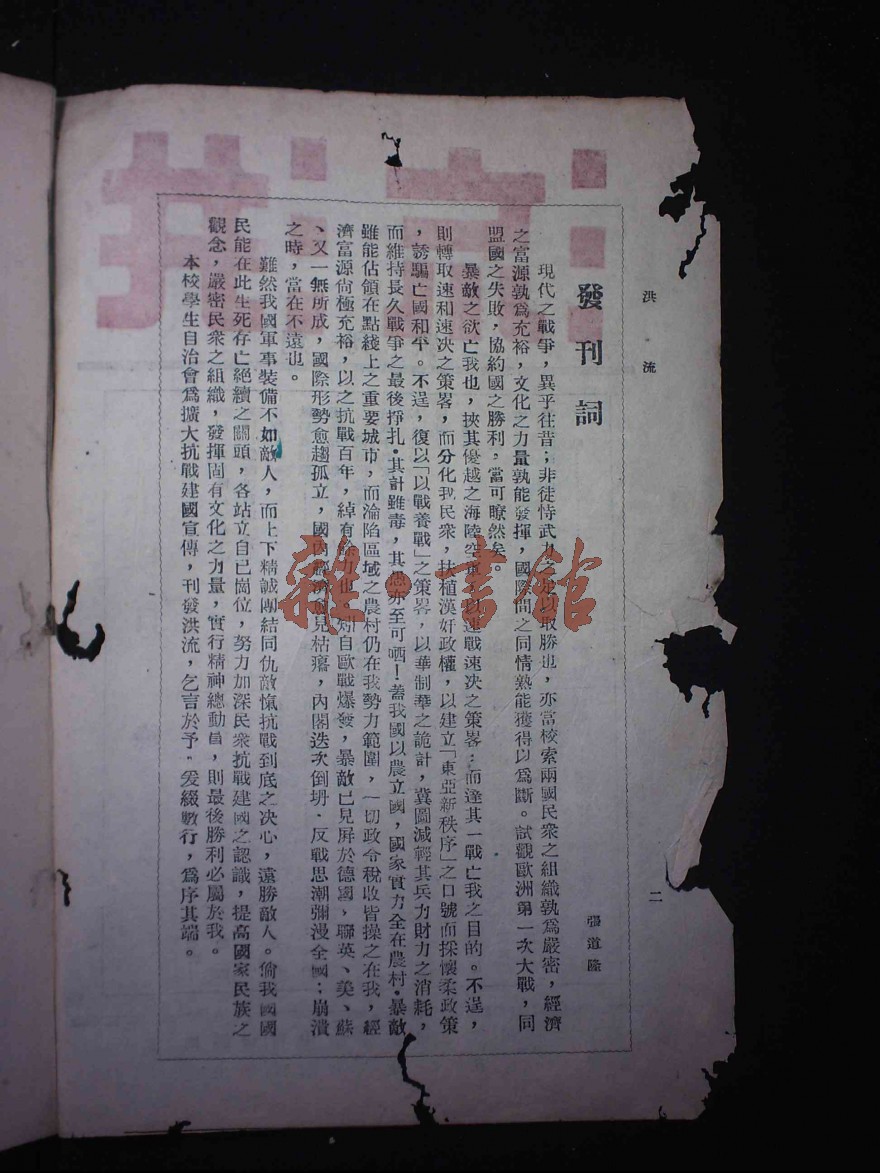 洪流
二
發刊詞
張道隆
現代之戰爭，異乎往昔；非徒恃武力之足以取勝也，亦當校索兩國民衆之組織孰爲嚴密，經濟
之富源孰爲充裕，文化之力量孰能發揮，國際間之同情熟能獲得以爲斷。試觀歐洲第一次大戰，同
盟國之失敗，協約國之勝利，當可瞭然矣。
暴敵之欲亡我也，挾其優越之海陸空軍，以速戰速决之策畧；而達其一戰亡我之目的。不逞，
則轉取速和速决之策畧，而分化我民衆，扶植漢奸政權，以建立「東亞新秩序」之口號而採懷柔政策
，誘騙亡國和平。不逞，復以「以戰養戰」之策畧，以華制華之詭計，冀圖減輕其兵力財力之消耗，
而維持長久戰爭之最後掙扎・其計雖毒，其愚亦至可哂！蓋我國以農立國，國家實力全在農村・暴敵
雖能佔領在點綫上之重要城市，而淪陷區域之農村仍在我勢力範圍，一切政令稅收皆操之在我，經
濟富源尙極充裕，以之抗戰百年，綽有餘力也。知自歐戰爆發，暴敵已見屏於德國，聯英、美、蘇
、又一無所成，國際形勢愈趨孤立，國內經濟愈見枯瘠，內閣迭次倒坍・反戰思潮彌漫全國；崩潰
之時，當在不遠也。
難然我國軍事裝備不如敵人，而上下精誠團結同仇敵愾抗戰到底之决心，遠勝敵人。倘我國國
民能在此生死存亡絕續之關頭，各站立自己崗位，努力加深民衆抗戰建國之認識，提高國家民族之
觀念，嚴密民衆之組織，發揮固有文化之力量，實行精神總動員，則最後勝利必屬於我。
本校學生自治會爲擴大抗戰建國宣傳，刊發洪流，乞言於予。爰綴數行，爲序其端。
雜・書館